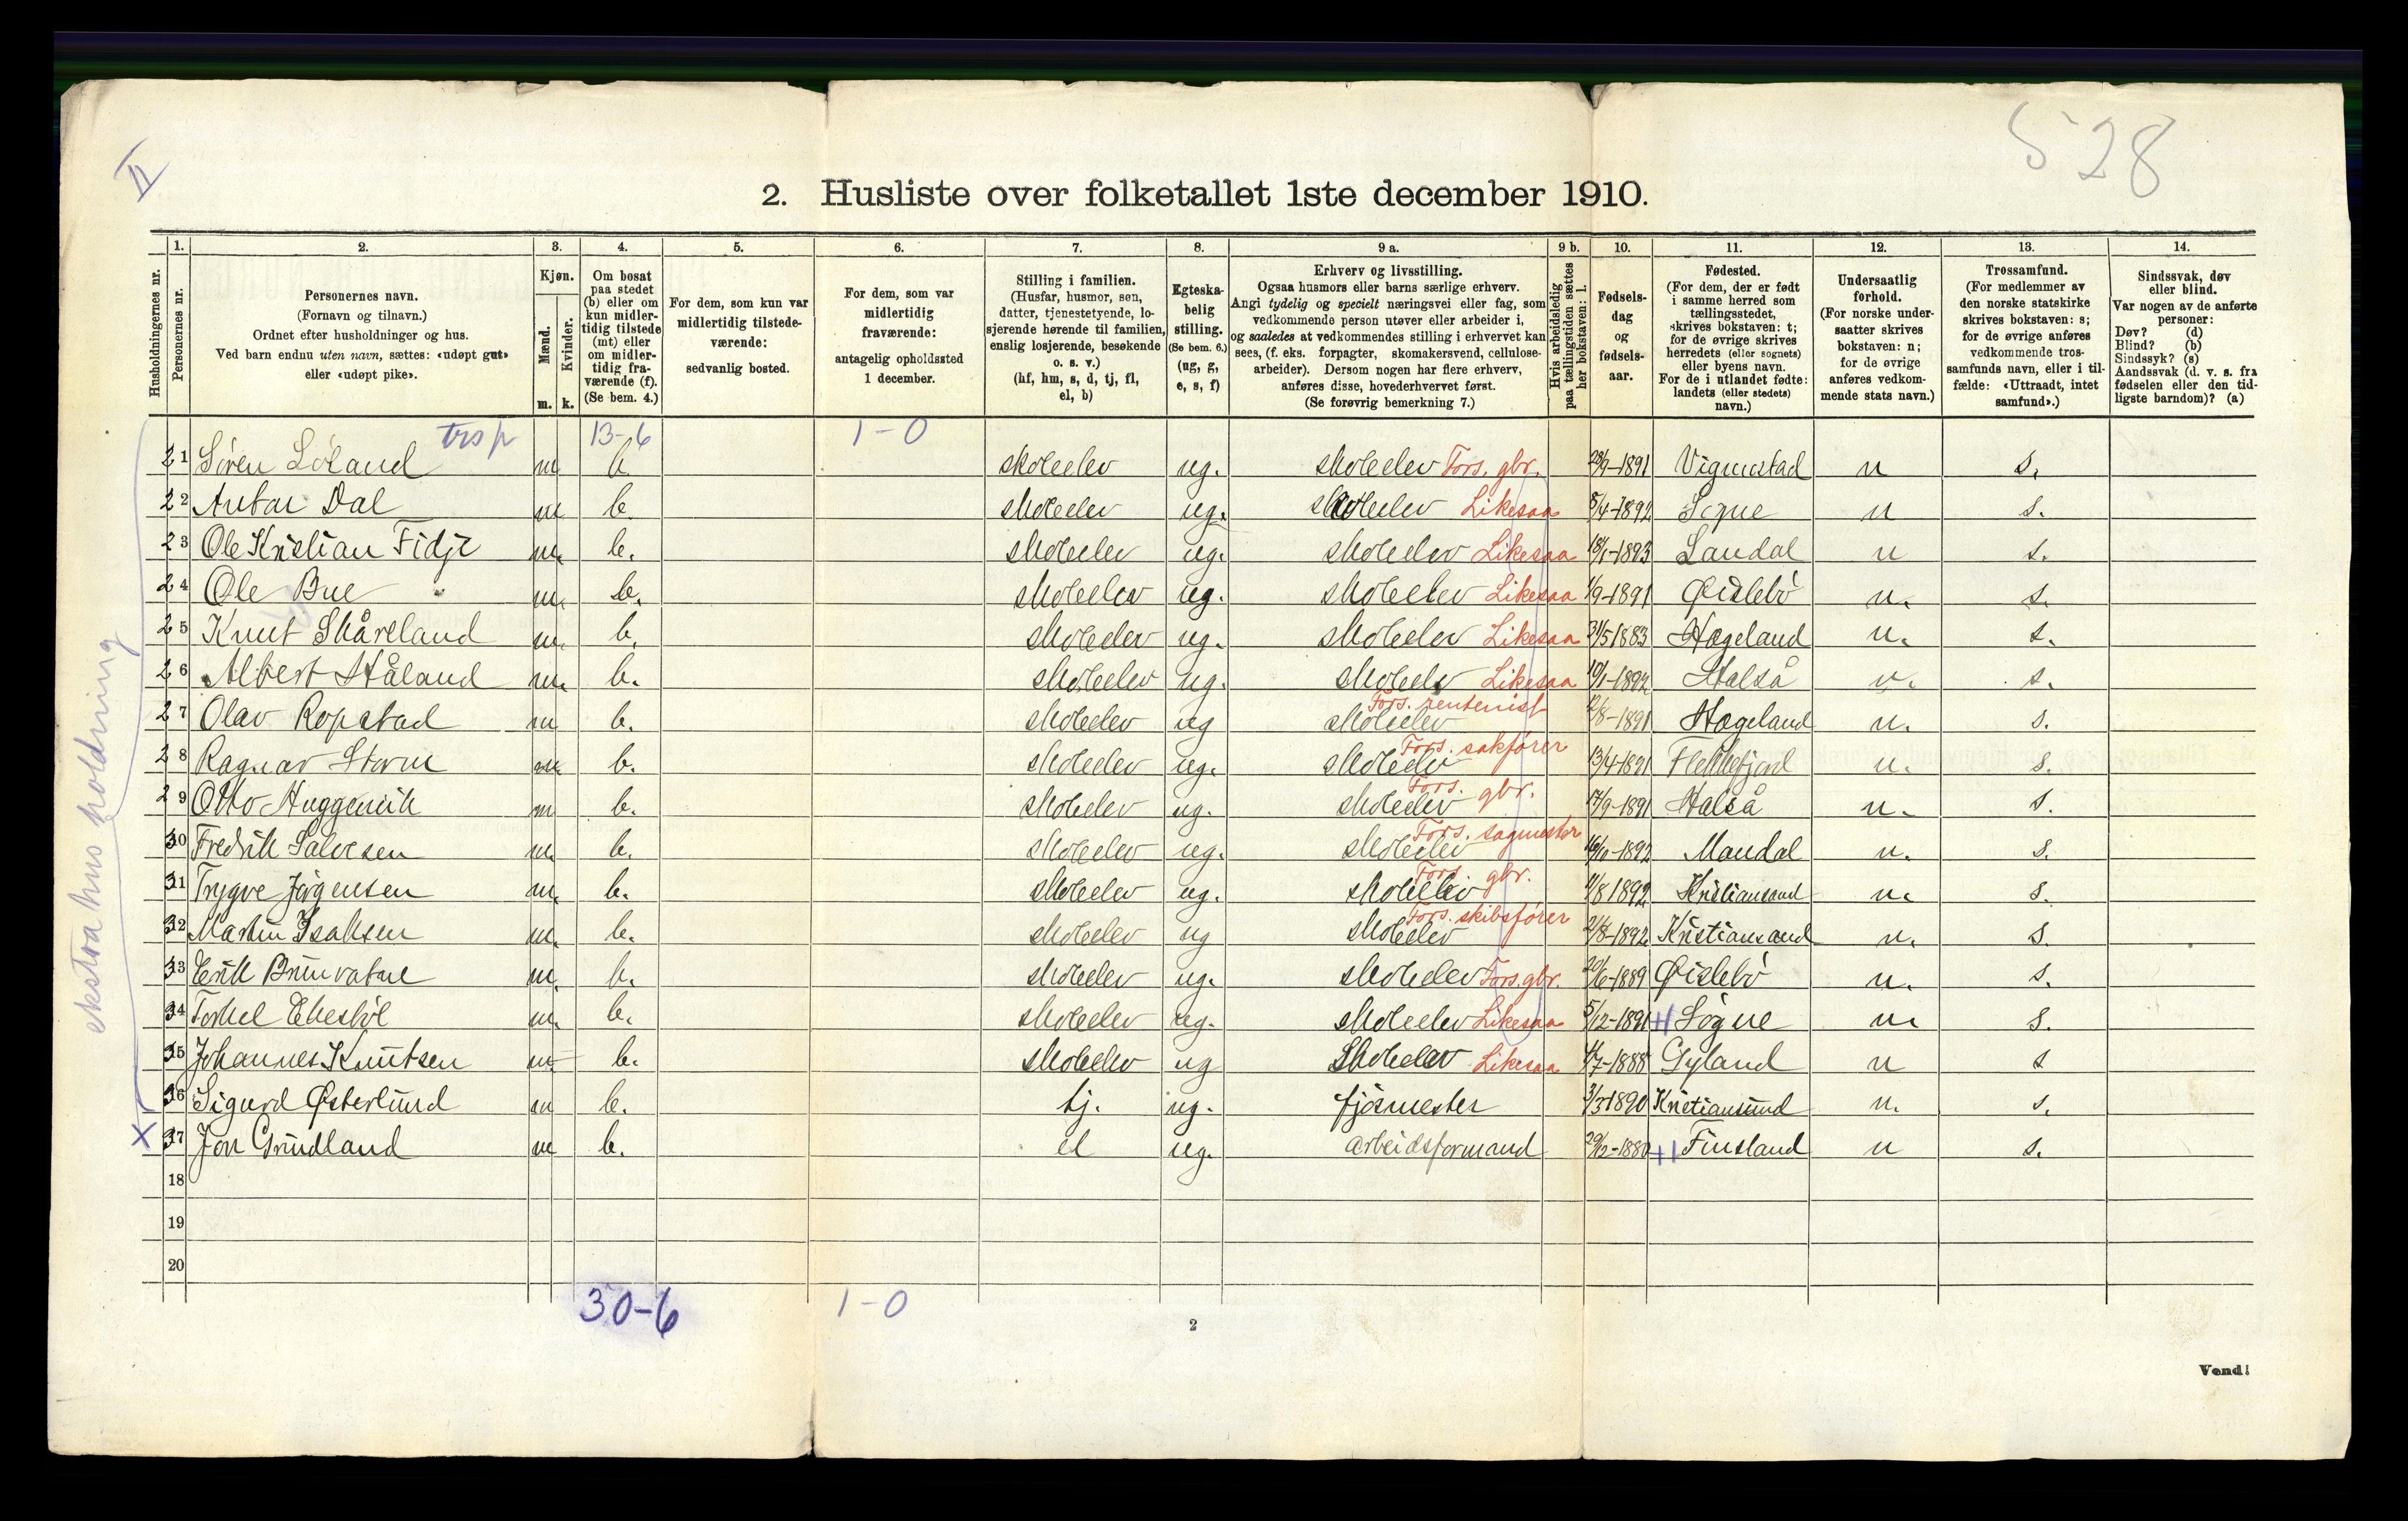 II
528
2. Husliste over folketallet 1ste december 1910.
Husholdningernes nr.
1. Personernes nr.
2. Personernes navn. (Fornavn og tilnavn.) Ordnet efter husholdninger og hus. Ved barn endnu uten navn, sættes: «udøpt gut» eller «udøpt pike».
3. Kjøn. Mænd. Kvinder. m. k.
4. Om bosat paa stedet (b) eller om kun midlertidig tilstede (mt) eller om midlertidig fraværende (f). (Se bem. 4.)
5. For dem, som kun var midlertidig tilstedeværende: sedvanlig bosted.
6. For dem, som var midlertidig fraværende: antagelig opholdssted 1 december.
7. Stilling i familien. (Husfar, husmor, søn, datter, tjenestetyende, losjerende hørende til familien, enslig losjerende, besøkende o. s. v.) (hf, hm, s, d, tj, fl, el, b)
8. Egteskabelig stilling. (Se bem. 6.) (ug, g, e, s, f)
9 a. Erhverv og livsstilling. Ogsaa husmors eller barns særlige erhverv. Angi tydelig og specielt næringsvei eller fag, som vedkommende person utøver eller arbeider i, og saaledes at vedkommendes stilling i erhvervet kan sees, (f. eks. forpagter, skomakersvend, cellulosearbeider). Dersom nogen har flere erhverv, anføres disse, hovederhvervet først. (Se forøvrig bemerkning 7.)
9 b. Hvis arbeidsledig paa tællingstiden sættes her bokstaven: l.
10. Fødselsdag og fødselsaar.
11. Fødested. (For dem, der er født i samme herred som tællingsstedet, skrives bokstaven: t; for de øvrige skrives herredets (eller sognets) eller byens navn. For de i utlandet fødte: landets (eller stedets) navn.)
12. Undersaatlig forhold. (For norske undersaatter skrives bokstaven: n; for de øvrige anføres vedkommende stats navn.)
13. Trossamfund. (For medlemmer av den norske statskirke skrives bokstaven: s; for de øvrige anføres vedkommende trossamfunds navn, eller i tilfælde: «Uttraadt, intet samfund».)
14. Sindssvak, døv eller blind. Var nogen av de anførte personer: Døv? (d) Blind? (b) Sindssyk? (s) Aandssvak (d. v. s. fra fødselen eller den tidligste barndom)? (a)
13-6 1-0
21 Søren Løland m b. skoleelev ug. skoleelev Fors. gbr. 28/9-1891 Vigmostad n s.
22 Anton Dal m b. skoleelev ug. skoleelev Likesaa 5/4-1892 Søgne n s.
23 Ole Kristian Fidje m. b. skoleelev ug. skoleelev Likesaa 18/1-1893 Laudal n s.
24 Ole Bue m. b. skoleelev ug. skoleelev Likesaa 1/9-1891 Øislebø n. s.
25 Knut Skåreland m. b. skoleelev ug. skoleelev Likesaa 31/5 1883 Hægeland n. s.
26 Albert Håland m. b. skoleelev ug. skoleelv Likesaa 10/1-1892 Halså n. s.
27 Olav Ropstad m b. skoleelev ug skoleelev Fors. rentenist 12/8-1891 Hægeland n. s.
28 Ragnar Storm m b. skoleelev ug. skoleelev Fors. sakfører 13/4-1891 Flekkefjord n. s.
29 Otto Huggenvik m b. skoleelev ug. skoleelev Fors. gbr. 17/9-1891 Halså n. s.
30 Fredrik Salvesen m. b. skoleelev ug. skoleelev Fors. sagmester 16/10-1892 Mandal n. s.
31 Trygve Jørgensen m. b. skoleelev ug. skoleelev Fors. gbr. 11/8 1892 Kristiansand n. s.
32 Martin Isaksen m. b. skoleelev ug skoleelev Fors. skibsfører 21/8-1892 Kristiansand n. s.
33 Erik Brunvatne m. b. skoleelev ug. skoleelev Fors. gbr. 20/6-1889 Øislebø n. s.
34 Torkel Eikestøl m. b. skoleelev ug. skoleelev Likesaa 5/12-1891 +1 Søgne n. s.
35 Johannes Knutsen m b. skoleelev ug skoleelev Likesaa 4/7-1888 Gyland n s
36 Sigurd Østerlund m b. tj. ug. fjøsmester 3/3 1890 Kristiansund n. s.
X 37 Jon Grundland m b. el ug. arbeidsformand 29/2-1880 +1 Finsland n s.
18
19
20
ekstra hus holdning
30-6 1-0
2
Vend!